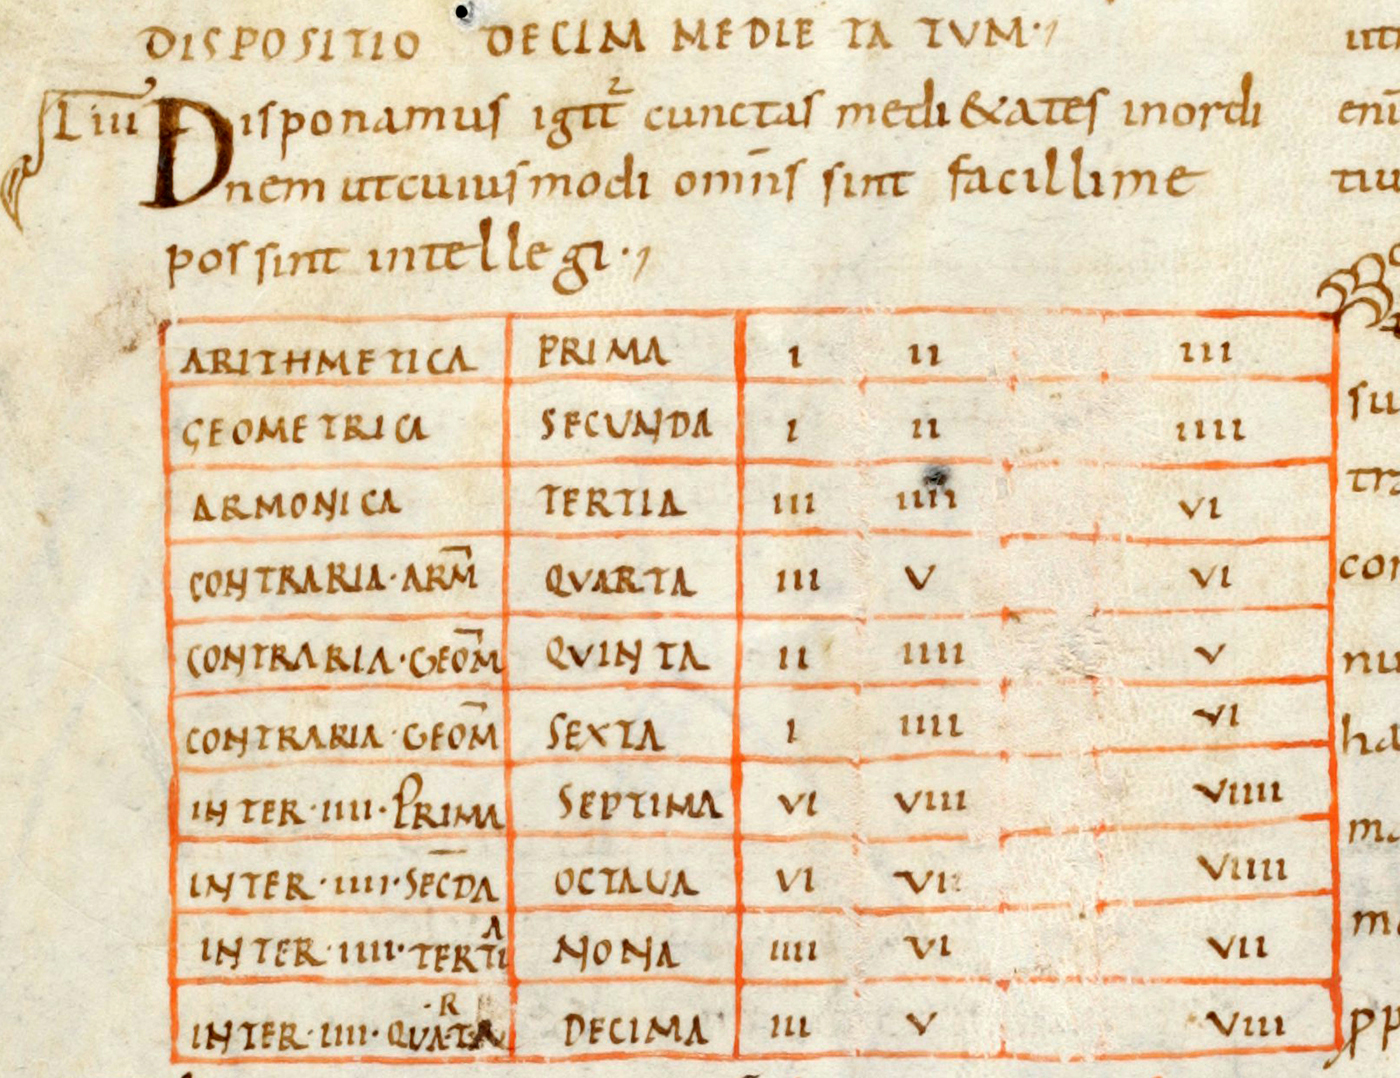 DISPOSITIO DECIM MEDIETATUM·,
Liiii Disponamus igit̄ cunctas medi&ates inordi
nem utcuiusmodi omīs sint facillime
possint intellegi·,
ARITHMETICA PRIMA I II III
GEOMETRICA SECUNDA I II IIII
ARMONICA TERTIA III IIII VI
CONTRARIA·ARM̄ QVARTA III V VI
CONTRARIA·GEOM̄ QVINTA II IIII V
CONTRARIA·GEOM̄ SEXTA I IIII VI
INTER·IIII·PRIMA SEPTIMA VI VIII VIIII
INTER·IIII·SEC̄DA OCTAUA VI VII VIIII
INTER·IIII·TERTIA NONA IIII VI VII
INTER·IIII·QUARTA DECIMA III V VIII